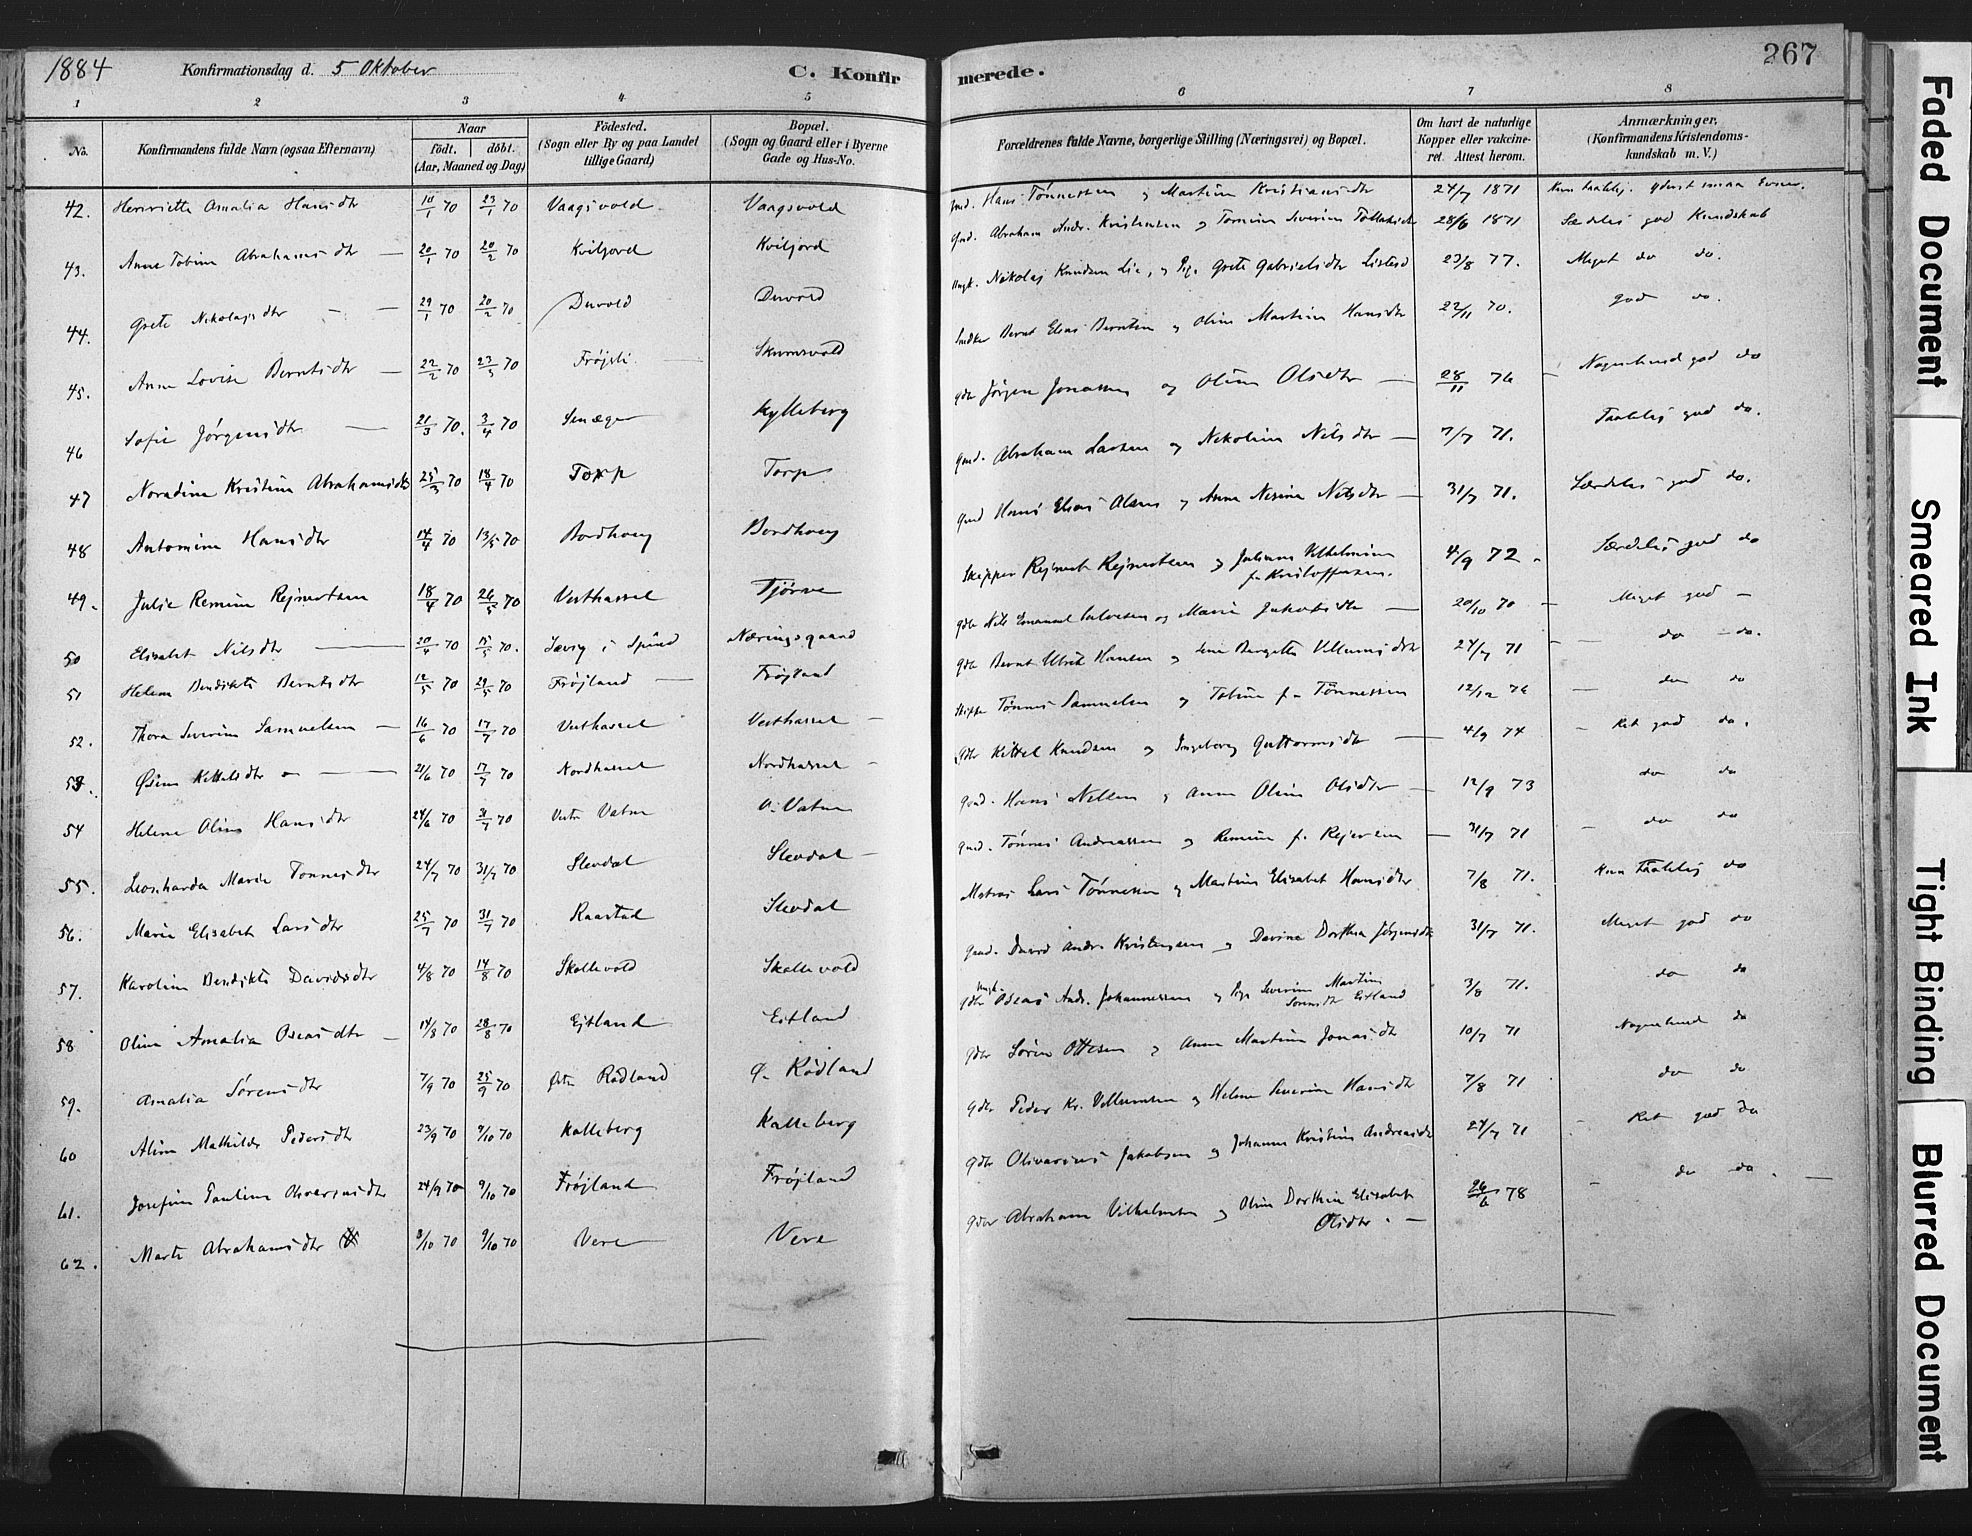 1884 Konfirmationsdag d. 5 Oktober C. Konfirmerede. 267
1 2 3 4 5 6 7 8
No. Konfirmandens fulde Navn (ogsaa Efternavn) Naar födt. döbt. (Aar, Maaned og Dag) Födested. (Sogn eller By og paa Landet tillige Gaard) Bopæl. (Sogn og Gaard eller i Byerne Gade og Hus-No. Forældrenes fulde Navne, borgerlige Stilling (Næringsvei) og Bopæl. Om havt de naturlige Kopper eller vakcineret. Attest herom. Anmærkninger. (Konfirmandens Kristendomskundskab m. V.)
42. Henriette Amalia Hansdtr 10/1 70 23/1 70 Vaagsvold Vaagsvold Gmd. Hans Tønnessen og Martine Kristiansdtr 24/7 1871
43. Anne Tobine Abrahamsdtr 20/1 70 20/2 70 Kviljord Kviljord Gmd. Abraham Andr. Kristensen og Severine 28/6 1871 Særdeles god Kundskab
44. Grete Nikolajsdtr 29/1 70 20/2 70 Duvold Duvold Ungk. Nikolaj Knudsen Lie, og Pige Grete Gabrielsdtr 23/8 77. Meget do do.
45. Anne Lovise Berntsdtr 22/2 70 23/3 70 Skurvold Bernt Elias Berntsen og Oline Martine Hansdtr 22/11 70. god do.
46 Sofie Jørgensdtr 21/3 70. 3/4 70 Kylleberg Gdr Jørgen Jonassen og Oline Olsdtr 28/11 76 Nogenlunde god do
47 Noradine Kristine Abrahamsdtr 25/3 70 18/4 70 Torp Torp Gmd. Abraham Larsen og Nikoline Nilsdtr 7/7 71. Taalelig god do.
48 Antomine Hansdtr 14/4 70 13/5 70 Bordhoug Bordhoug Gmd Hans Elias Olsen og Anne Nesine Nilsdtr 31/7 71. Særdeles god do.
49. Julie Remine Rejnertsen 18/4 70 26/5 70 Vesthassel Tjørve Skipper Rejnert Rejnertsen og Juliane Vilhelmine f. Kristoffersen. 4/9 72. Særdeles god do
50 Elisabet Nilsdtr 20/4 70 15/5 70. Sævig i Spind Næringsgaard Gdr Nils Emanuel Salvesen og Marie Jakobsdtr 20/10 70 Meget god
51 Helene Bendikte Berntsdtr 12/5 70 29/5 70 Frøjland Frøjland Gdr Bernt Ulrik Hansen og Lene Bergitte Villumsdtr 24/7 71 do do.
52. Thora Severine Samuelsen 16/6 70 17/7 70 Vesthassel Vesthassel Skipper Tønnes Samuelsen og Tobine f. Tønnessen 12/12 76 do do
53. Kittelsdtr 21/6 70 17/7 70 Nordhassel Nordhassel Gdr Kittel Knudsen og Ingeborg Guttormsdtr 4/9 74 Ret god do.
54 Helene Oline Hansdtr 24/6 70 31/7 70 Vestre Vatne V. Vatne Gmd. Hans Nilsen og Anne Oline Olsdtr 12/9 73 do do
55. Leonharda Marie Tønnesdtr 24/7 70 31/7 70 Slevdal Slevdal Gmd. Tønnes Andreassen og Remine f. Rejersen 31/7 71 do do
56. Marie Elisabet Larsdtr 25/7 70 31/7 70 Raastad Slevdal Matros Lars Tønnessen og Martine Elisabet Hansdtr 7/8 71. Kun taalelig do
57. Karoline Bendikte Davidsdtr 4/8 70 14/8 70 Skollevold Skollevold Gmd. David Andr. Kristensen og Davine Dorthea Jørgensdtr 31/7 71. Meget god do
58 Oline Amalia Oseasdtr 14/8 70 28/8 70 Ejtland Eitland Ungk. Oseas Andr. Johannessen og Pige Severine Martine Eitland 3/8 71. do do
59. Amalia Sørensdtr 7/9 70 25/9 70 Østre Rødland Ø. Rødland Gdr Søren Ottesen og Anne Martine Jonasdtr 10/7 71 Nogenlunde do
60 Aline Mathilde Pedersdtr 23/9 70 9/10 70 Kalleberg Kalleberg Gdr Peder Kr. Villumsen og Helene Severine Hansdtr 7/8 71 do do
61. Josefine Pauline Olivariusdtr 24/9 70 9/10 70 Frøjland Frøjland Gdr Olivarius Jakobsen og Johanne Kristine Andreasdtr 24/7 71 Ret god do
62. Marte Abrahamsdtr 3/10 70 9/10 70 Vere Vere Gdr Abraham Vilhelmsen og Oline Dorthea Elisabet Olsdtr. 26/6 78 do do.
Faded Document
Smeared Ink
Tight Binding
Blurred Document